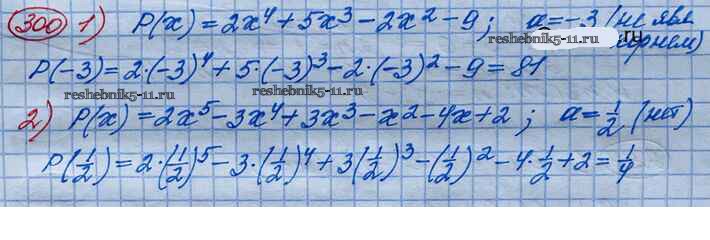 300 1) P(x) = 2x⁴ + 5x³ - 2x² - 9; a = -3 (не явл
reshebnik5-11.ru
корнем)
P(-3) = 2·(-3)⁴ + 5·(-3)³ - 2·(-3)² - 9 = 81
reshebnik5-11.ru reshebnik5-11.ru
2) P(x) = 2x⁵ - 3x⁴ + 3x³ - x² - 4x + 2; a = 1/2 (нет)
P(1/2) = 2·(1/2)⁵ - 3·(1/2)⁴ + 3(1/2)³ - (1/2)² - 4·1/2 + 2 = 1/4